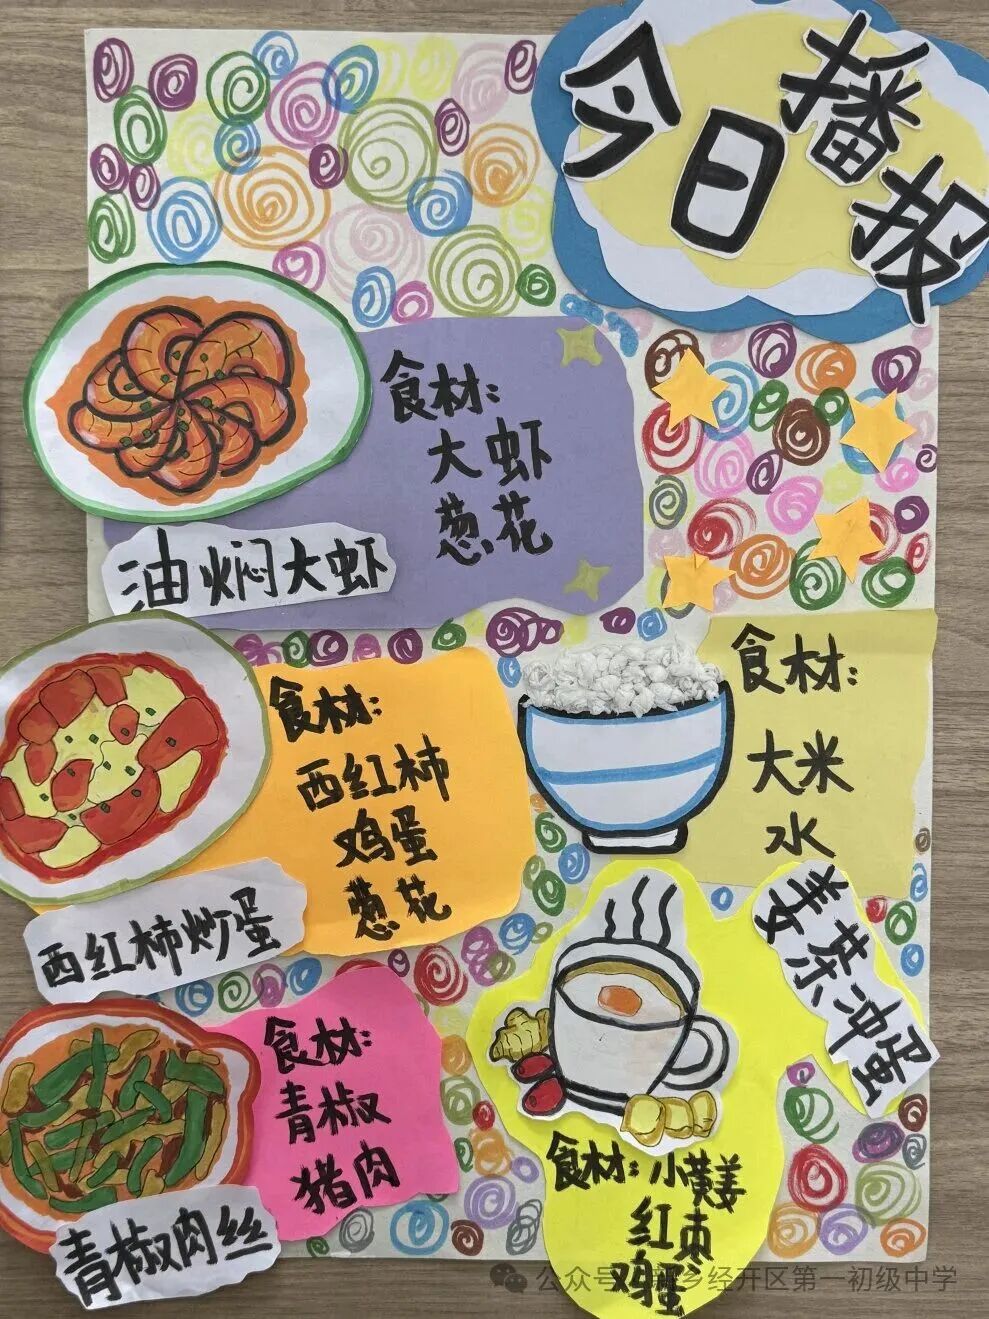 今日播报
食材:
大虾
葱花
油焖大虾
食材:
西红柿
鸡蛋
葱花
西红柿炒蛋
食材:
大米
水
姜茶冲蛋
食材:
青椒
猪肉
青椒肉丝
食材:小黄姜
红枣
鸡蛋
公众号
乡经开区第一初级中学